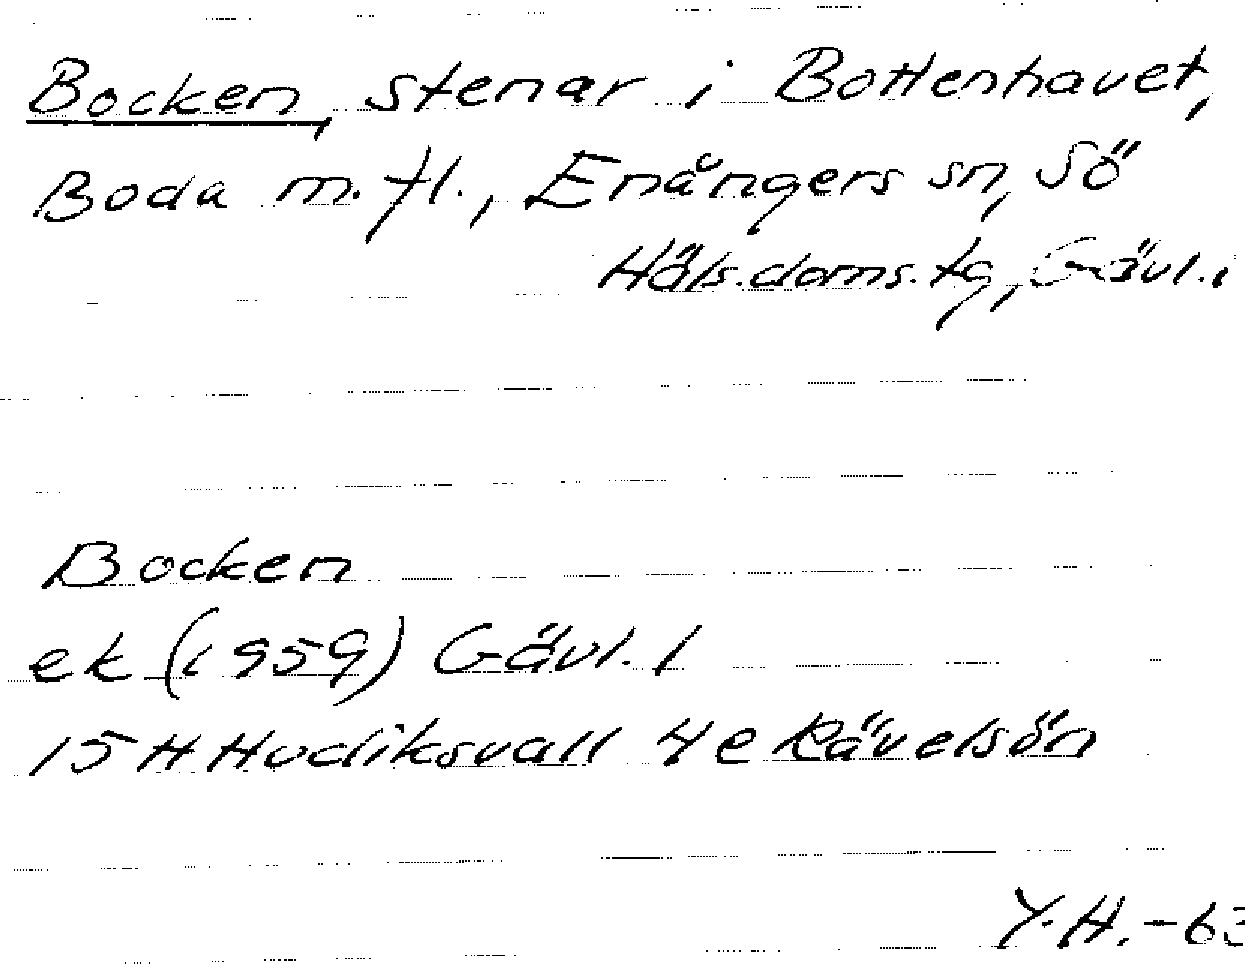 Bocken, stenar i Bottenhavet,
Boda m.fl., Enångers sn, Sö
Häls.doms.tg, Gävl.
Bocken
ek (1959) Gävl. l
15 H Hudiksvall 4 e Rävelsön
Y.H. -63